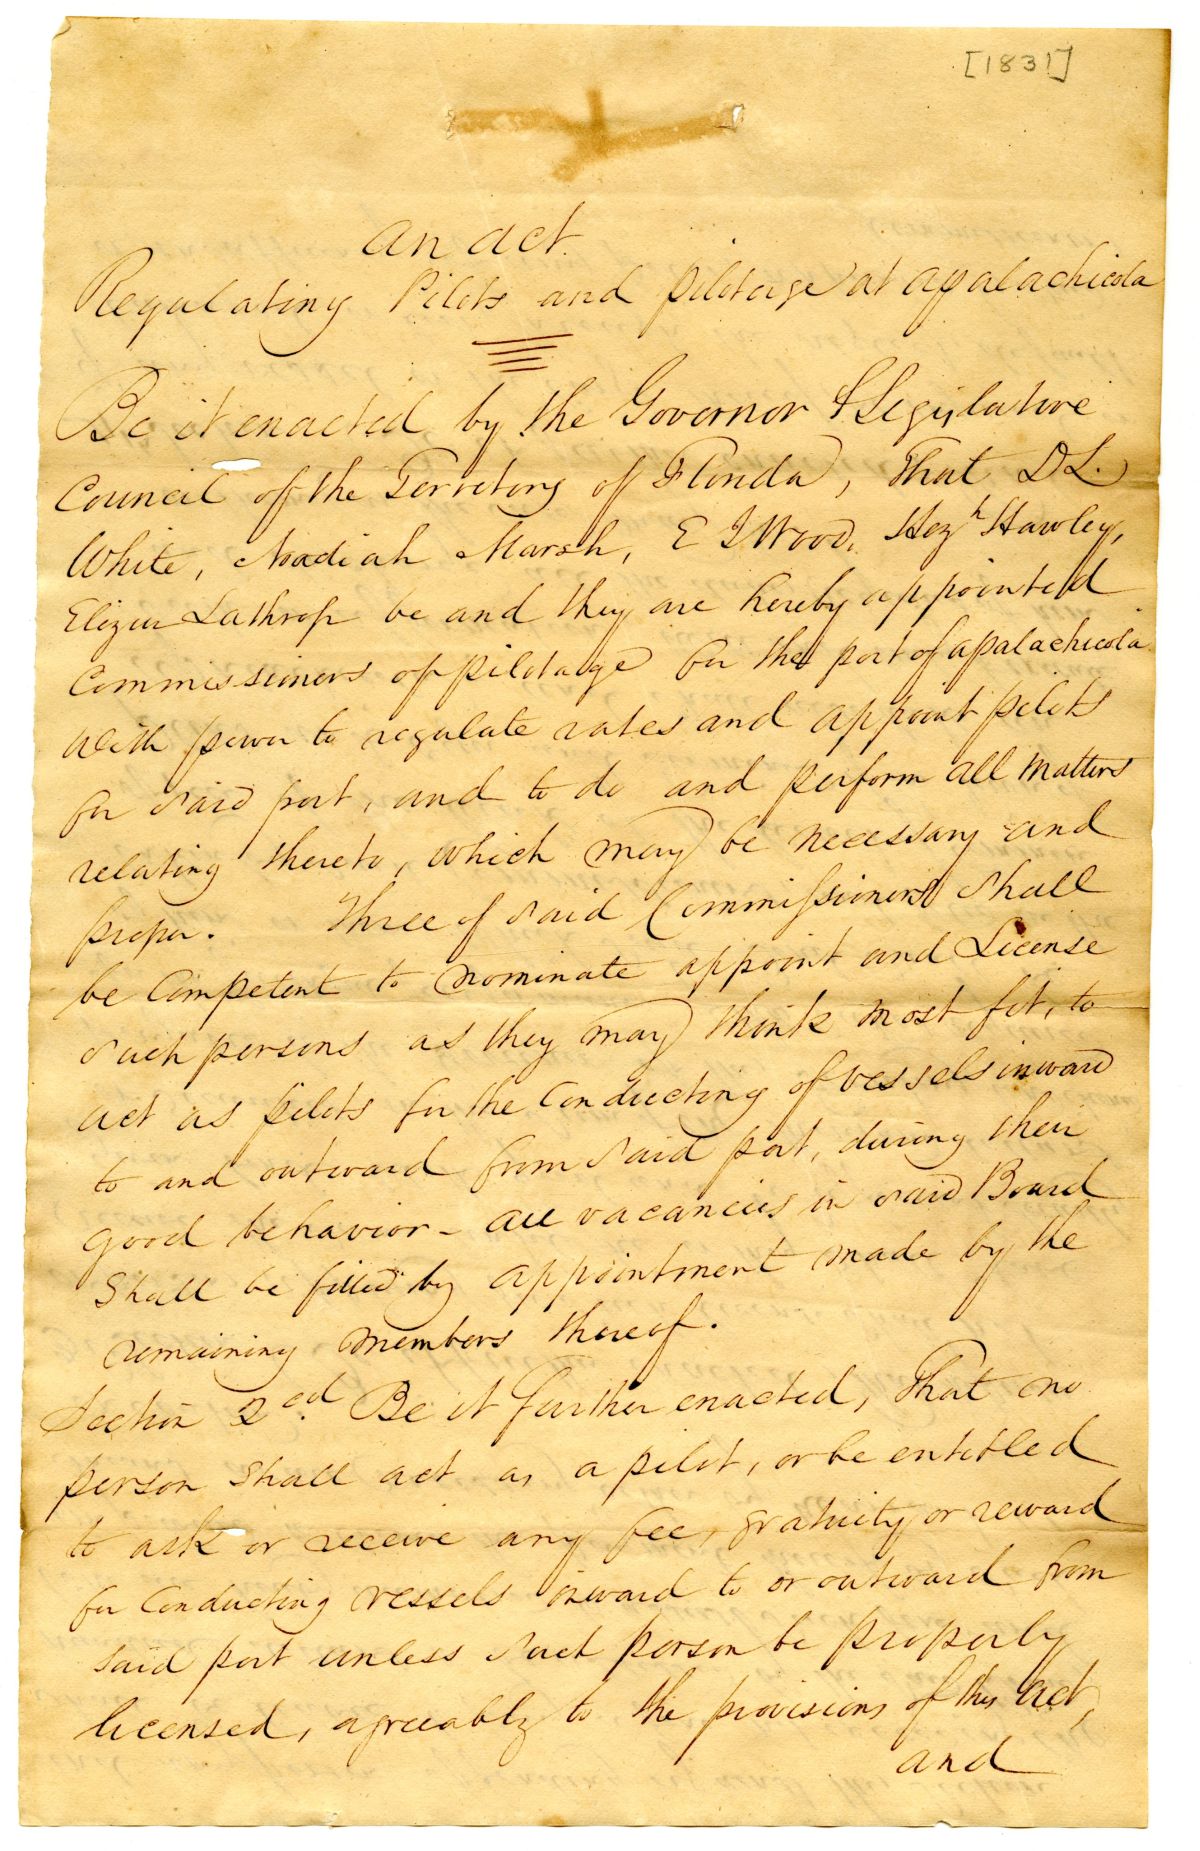 [1831]
an act.
Regulating Pilots and pilotage at apalachicola
Be it enacted by the Governor & Legislative
Council of the Territory of Florida, That D L.
White, Noadiah Marsh, E J Wood, Hezh Hawley,
Elizur Lathrop be and they are hereby appointed
Commissioners of pilotage for the port of apalachicola
with power to regulate rates and appoint pilots
for said port, and to do and perform all matters
relating thereto, which may be necessary and
proper. Three of said Commissioners shall
be Competent to nominate appoint and License
such persons as they may think most fit, to
act as pilots for the Conducting of vessels inward
to and outward from said port, during their
good behavior - all vacancies in said Board
shall be filled by appointment made by the
remaining members thereof.
Section 2cd. Be it further enacted, That no
person shall act as a pilot, or be entitled
to ask or receive any fee, gratuity or reward
for Conducting vessels inward to or outward from
said port unless such person be properly
licensed, agreeably to the provisions of this act,
and